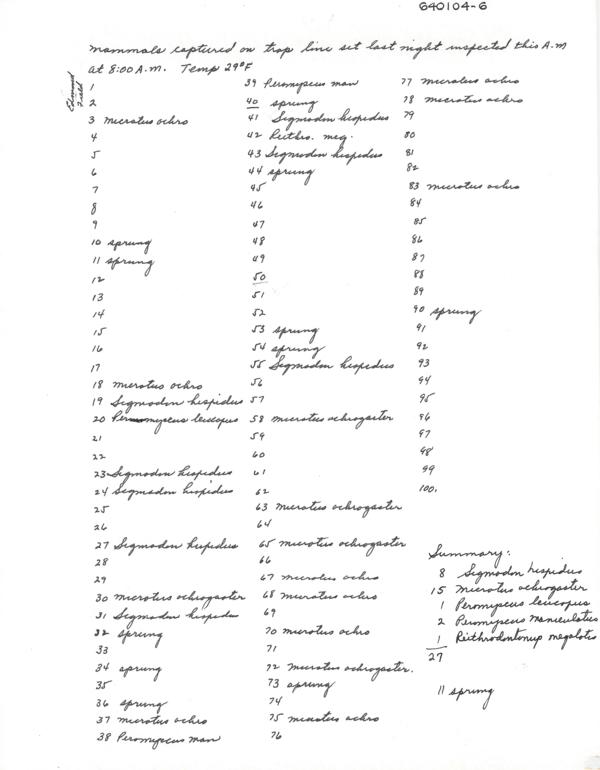 640104-6
mammals captured on trap line set last night inspected this A.M
at 8:00 A.M. Temp 29°F
Edmund Field
1
2
3 microtus ochro
4
5
6
7
8
9
10 sprung
11 sprung
12
13
14
15
16
17
18 microtus ochro
19 Sigmodon hispidus
20 Peromyscus leucopus
21
22
23 Sigmodon hispidus
24 Sigmodon hispidus
25
26
27 Sigmodon hispidus
28
29
30 microtus ochrogaster
31 Sigmodon hispidus
32 sprung
33
34 sprung
35
36 sprung
37 microtus ochro
38 Peromyscus man
39 Peromyscus man
40 sprung
41 Sigmodon hispidus
42 Reithro. meg.
43 Sigmodon hispidus
44 sprung
45
46
47
48
49
50
51
52
53 sprung
54 sprung
55 Sigmodon hispidus
56
57
58 microtus ochrogaster
59
60
61
62
63 microtus ochrogaster
64
65 microtus ochrogaster
66
67 microtus ochro
68 microtus ochro
69
70 microtus ochro
71
72 microtus ochrogaster.
73 sprung
74
75 microtus ochro
76
77 microtus ochro
78 microtus ochro
79
80
81
82
83 microtus ochro
84
85
86
87
88
89
90 sprung
91
92
93
94
95
96
97
98
99
100.
Summary:
8 Sigmodon hispidus
15 Microtus ochrogaster
1 Peromyscus leucopus
2 Peromyscus maniculatus
1 Reithrodontomys megalotis
27
11 sprung